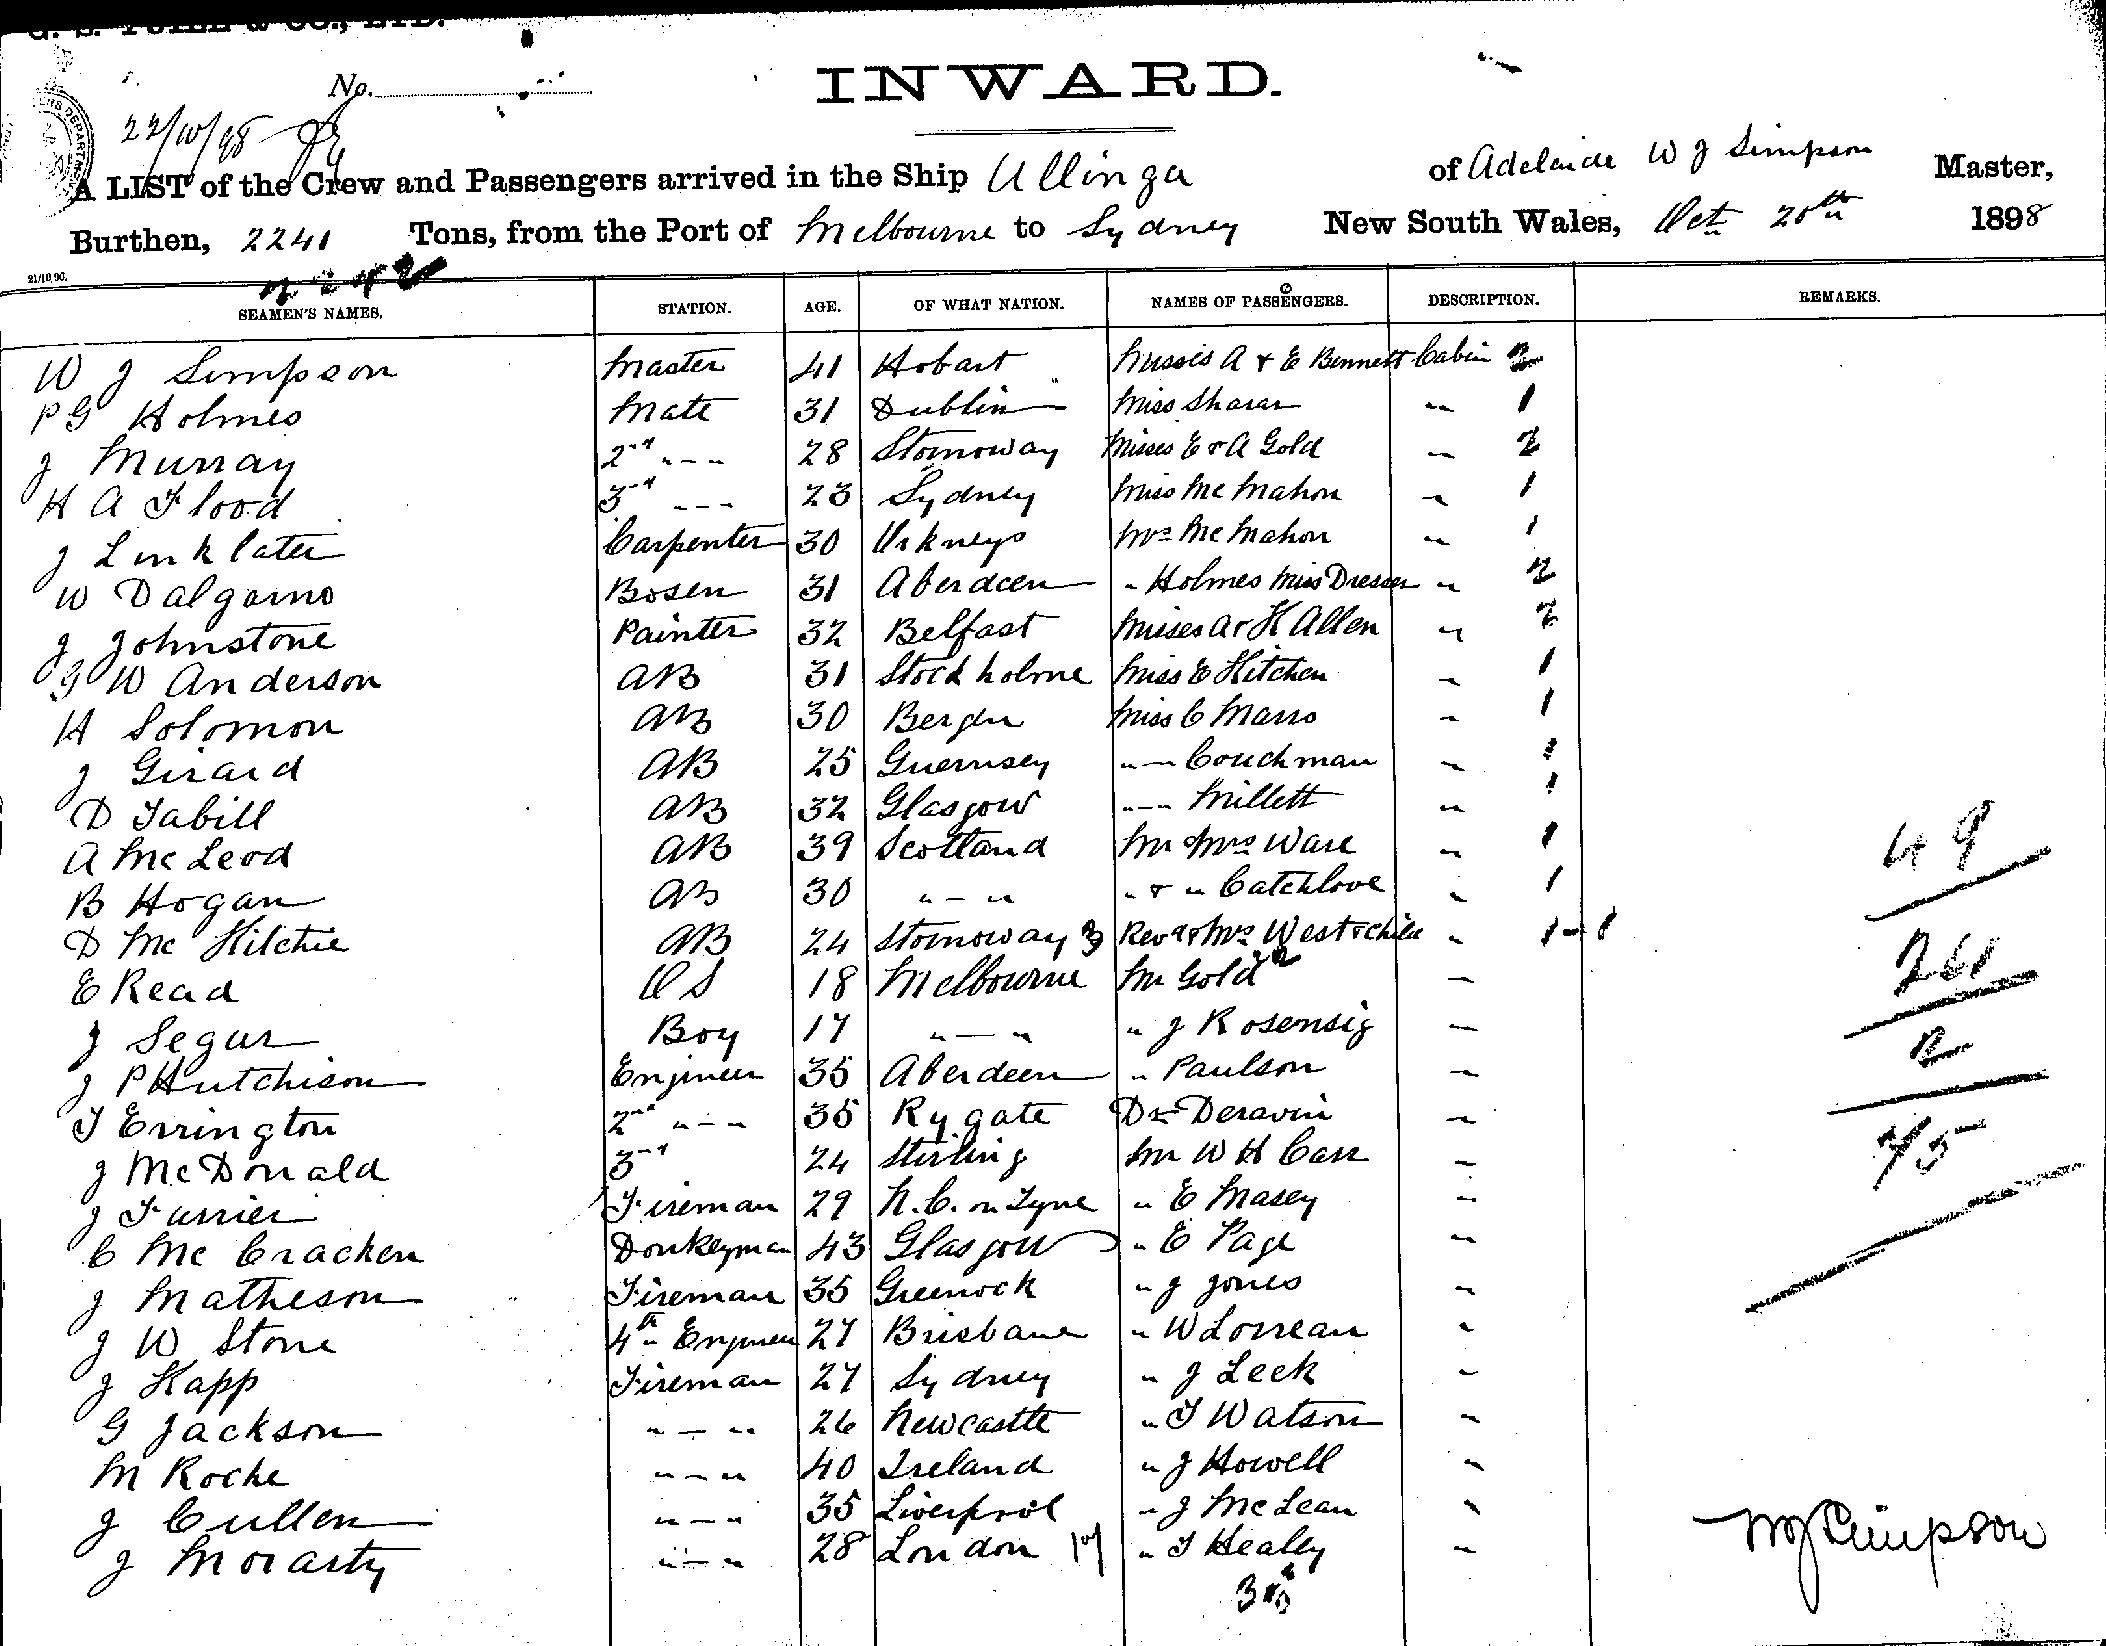 No.
INWARD.
22/10/98
A LIST of the Crew and Passengers arrived in the Ship Ullinga of Adelaide W J Simpson Master,
Burthen, 2241 Tons, from the Port of Melbourne to Sydney New South Wales, Oct 20th 1898
21/10 96.
SEAMEN'S NAMES. STATION. AGE. OF WHAT NATION. NAMES OF PASSENGERS. DESCRIPTION. REMARKS.
W J Simpson Master 41 Hobart Misses A & E Bennett Cabin 2
P G Holmes Mate 31 Dublin Miss Sharar " 1
J Murray 2nd " 28 Stornoway Misses E & A Gold " 2
H A Flood 3rd " 23 Sydney Miss McMahon " 1
J Linklater Carpenter 30 Orkneys Mrs McMahon " 1
W Dalgarno Bosen 31 Aberdeen " Holmes Miss Dresser " 2
J Johnstone Painter 32 Belfast Misses A & K Allen " 2
G W Anderson AB 31 Stockholme Miss E Kitchen " 1
H Solomon AB 30 Bergen Miss C Marro " 1
J Girard AB 25 Guernsey " Couchman " 1
D Tabill AB 32 Glasgow " Millett " 1
A McLeod AB 39 Scotland Mr & Mrs Ware " 1
B Hogan AB 30 " - " " & " Catchlove " 1
D McKitchie AB 24 Stornoway Revd & Mrs West & child " 1-1
E Read OS 18 Melbourne Mr Gold "
J Segur Boy 17 " - " " J Rosensig "
J P Hutchison Engineer 35 Aberdeen " Paulson "
T Errington 2nd " 35 Rygate Dr Deravin "
J McDonald 3rd 24 Stirling Mr W H Carr "
J Furrier Fireman 29 N.C. on Tyne " E Masey "
C McCracken Donkeyman 43 Glasgow " E Page "
J Matheson Fireman 35 Greenock " J Jones "
J W Stone 4th Engineer 27 Brisbane " W Lorreau "
J Kapp Fireman 27 Sydney " J Leek "
G Jackson " - " 26 Newcastle " T Watson "
M Roche " - " 40 Ireland " J Howell "
J Cullen " - " 35 Liverpool " J McLean "
J Morarty " - " 28 London " T Healey "
49
24
2
75
WJ Simpson